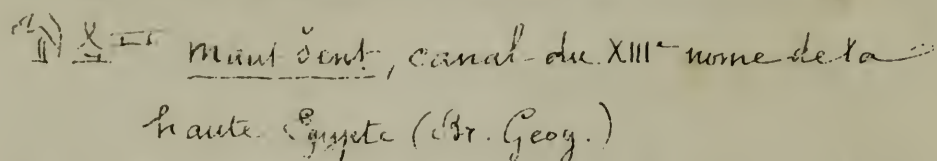 Maut Sent, canal du XIIIe nome de la
haute Egypte (Br. Geog.)